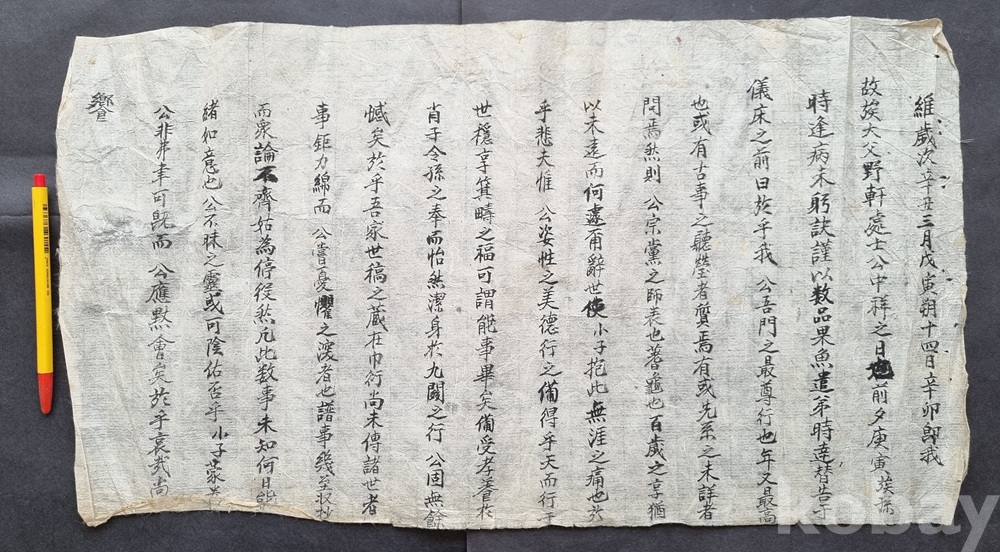 維歲次辛丑三月戊寅朔十四日辛卯卽我
故族大父野軒處士公中祥之日也前夕庚寅族孫
時逢病未躬誄謹以数品果魚遣弟時達替告于
儀床之前曰於乎我 公吾門之最尊行也年又最高
也或有古事之聽瑩者質焉有或先系之未詳者
問焉然則 公宗黨之師表也蓍龜也百歲之享猶
以未遠而何遽爾辭世使小子抱此無涯之痛也於
乎悲夫惟 公姿性之美德行之備得乎天而行于
世穩享箕疇之福可謂能事畢矣備受孝養於
肖子令孫之奉而怡然潔身於九闕之行 公固無餘
憾矣於乎吾家世稿之蔵在巾衍尚未傳諸世者
事鉅力綿而 公嘗憂懼之深者也譜事幾至収抄
而衆論不齊姑為停役愁凡此数事未知何日
緒如意也公不昧之靈或可陰佑否乎小子蒙
公非常事可旣而 公應默會矣於乎哀哉尚
饗
kobay